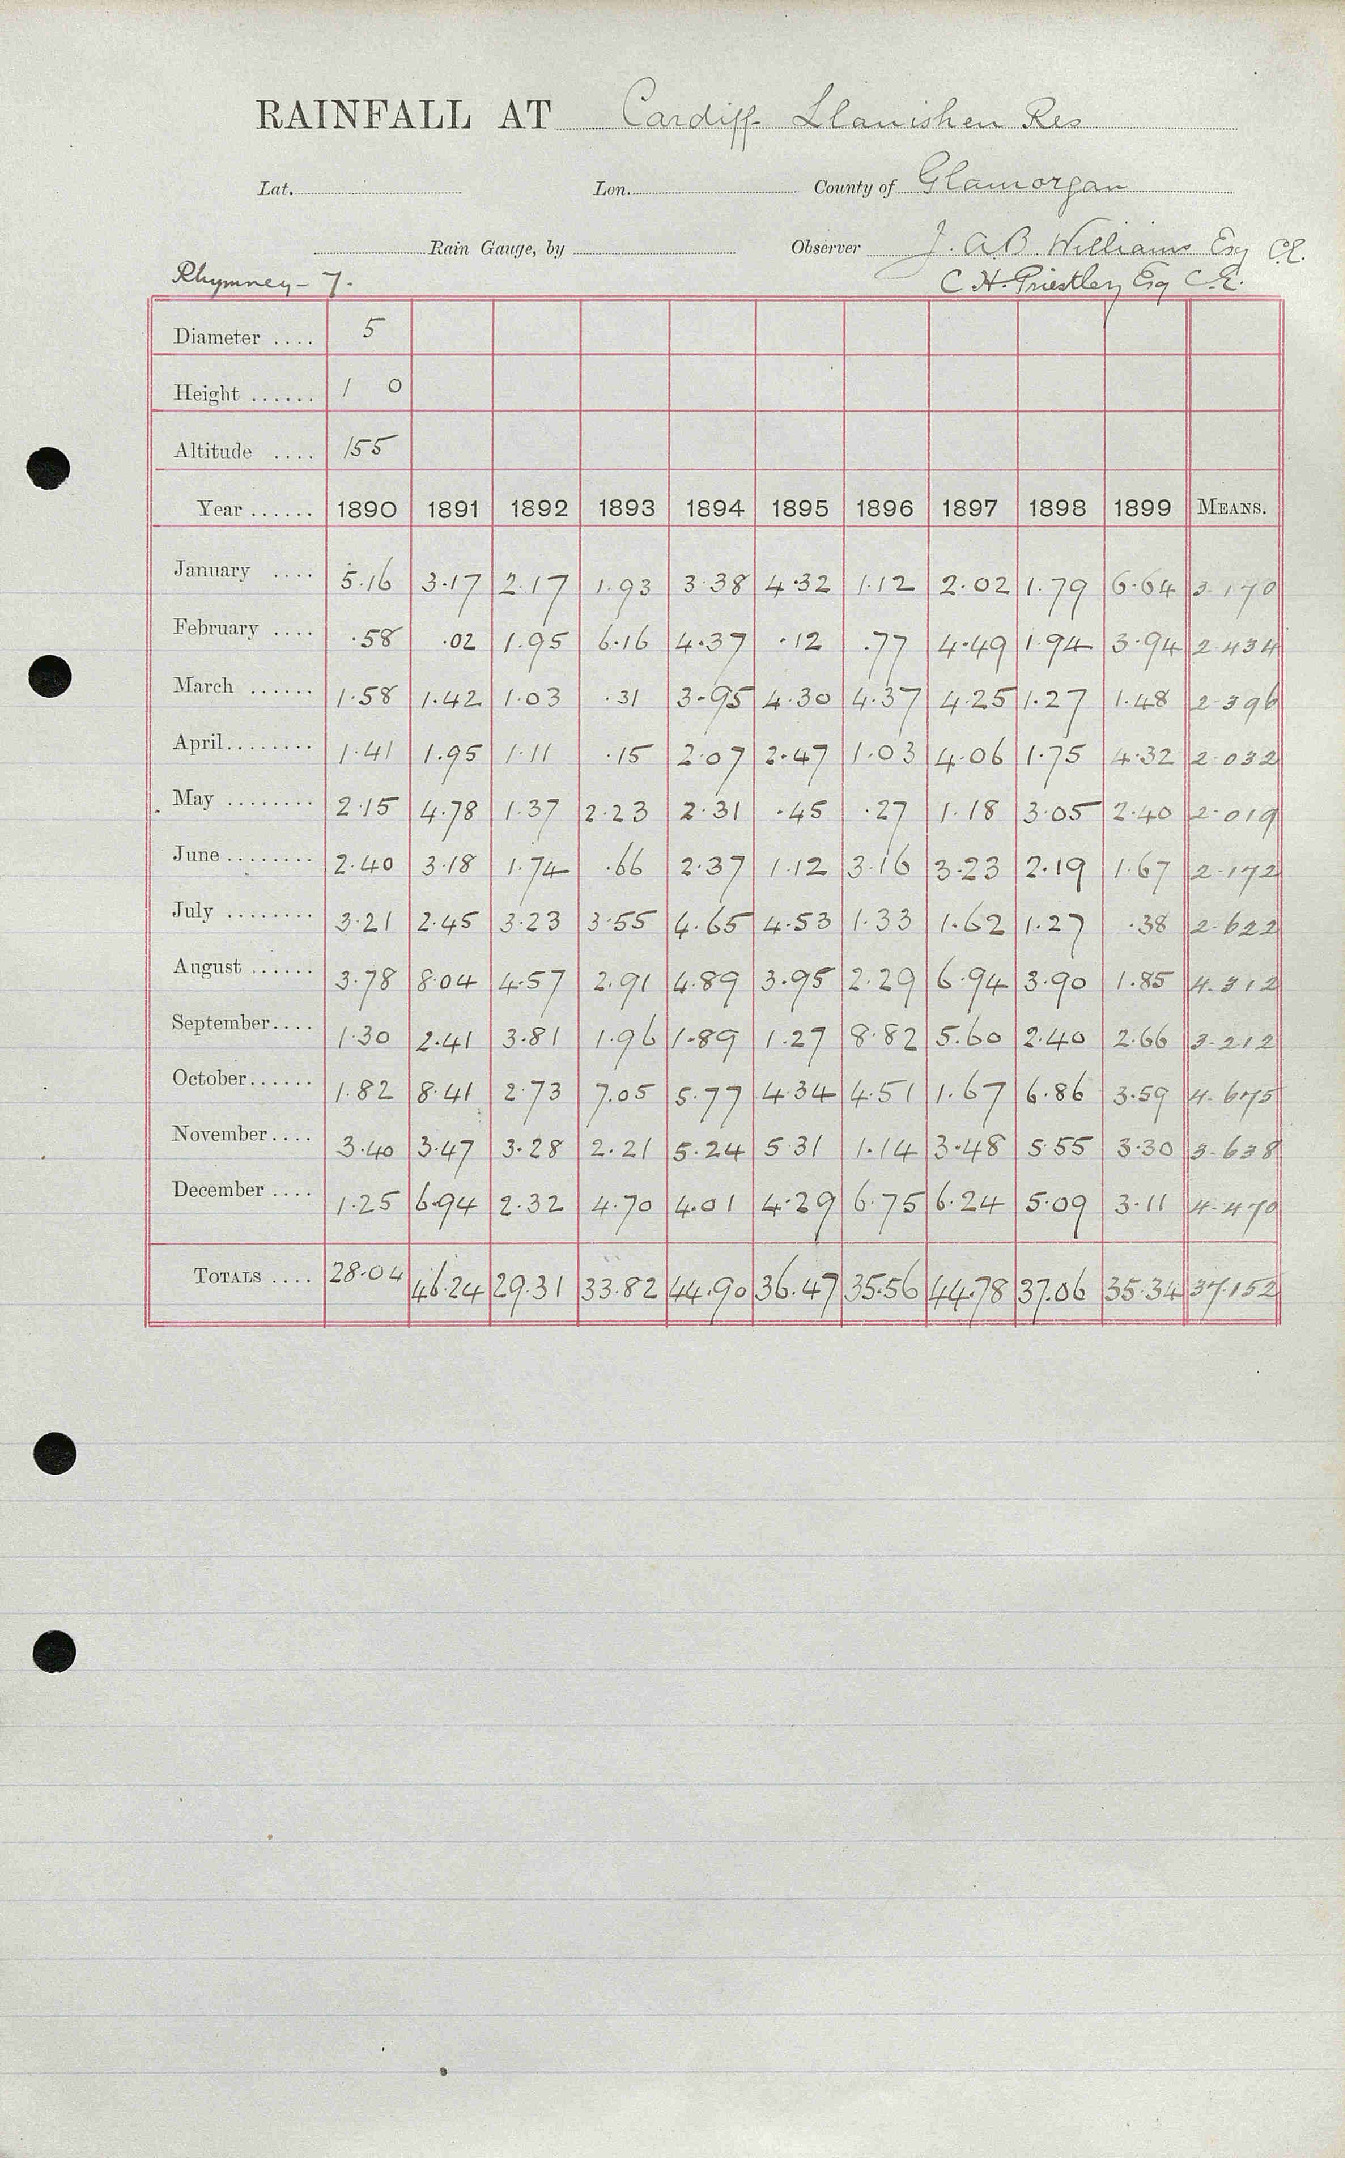 RAINFALL AT Cardiff Llanishen Res
Lat. Lon. County of Glamorgan
Rain Gauge, by Observer J. A. B. Williams Esq C.E.
Rhymney - 7. C. H. Priestley Esq C.E.
Diameter .... 5
Height ...... 1 0
Altitude .... 155
Year ...... 1890 1891 1892 1893 1894 1895 1896 1897 1898 1899 MEANS.
January .... 5.16 3.17 2.17 1.93 3.38 4.32 1.12 2.02 1.79 6.64 3.170
February .... .58 .02 1.95 6.16 4.37 .12 .77 4.49 1.94 3.94 2.434
March ...... 1.58 1.42 1.03 .31 3.95 4.30 4.37 4.25 1.27 1.48 2.396
April........ 1.41 1.95 1.11 .15 2.07 2.47 1.03 4.06 1.75 4.32 2.032
May ........ 2.15 4.78 1.37 2.23 2.31 .45 .27 1.18 3.05 2.40 2.019
June ........ 2.40 3.18 1.74 .66 2.37 1.12 3.16 3.23 2.19 1.67 2.172
July ........ 3.21 2.45 3.23 3.55 4.65 4.53 1.33 1.62 1.27 .38 2.622
August ...... 3.78 8.04 4.57 2.91 4.89 3.95 2.29 6.94 3.90 1.85 4.312
September.... 1.30 2.41 3.81 1.96 1.89 1.27 8.82 5.60 2.40 2.66 3.212
October...... 1.82 8.41 2.73 7.05 5.77 4.34 4.51 1.67 6.86 3.59 4.675
November.... 3.40 3.47 3.28 2.21 5.24 5.31 1.14 3.48 5.55 3.30 3.638
December .... 1.25 6.94 2.32 4.70 4.01 4.29 6.75 6.24 5.09 3.11 4.470
TOTALS .... 28.04 46.24 29.31 33.82 44.90 36.47 35.56 44.78 37.06 35.34 37.152